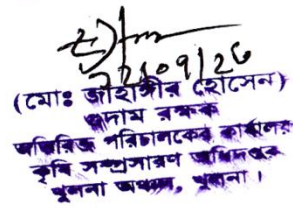 (মোঃ জাহাঙ্গীর হোসেন)
গুদাম রক্ষক
অতিরিক্ত পরিচালকের কার্যালয়
কৃষি সম্প্রসারণ অধিদপ্তর
খুলনা অঞ্চল, খুলনা।